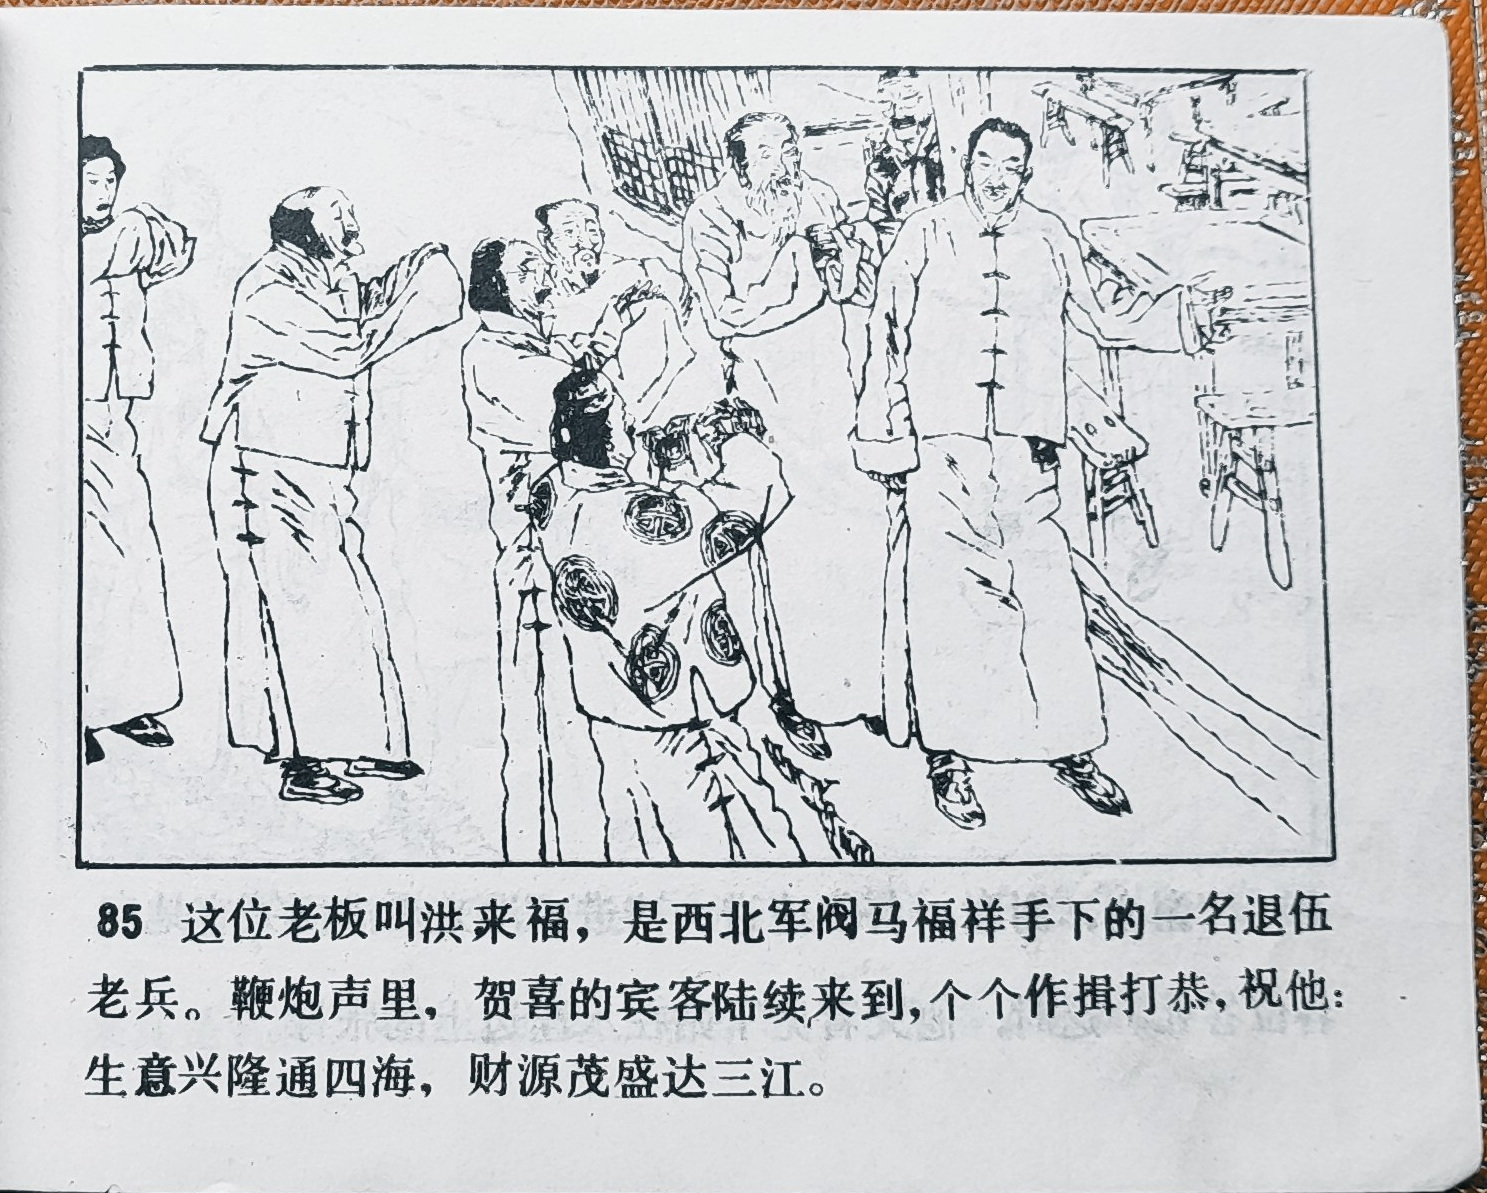 85 这位老板叫洪来福，是西北军阀马福祥手下的一名退伍
老兵。鞭炮声里，贺喜的宾客陆续来到，个个作揖打恭，祝他：
生意兴隆通四海，财源茂盛达三江。